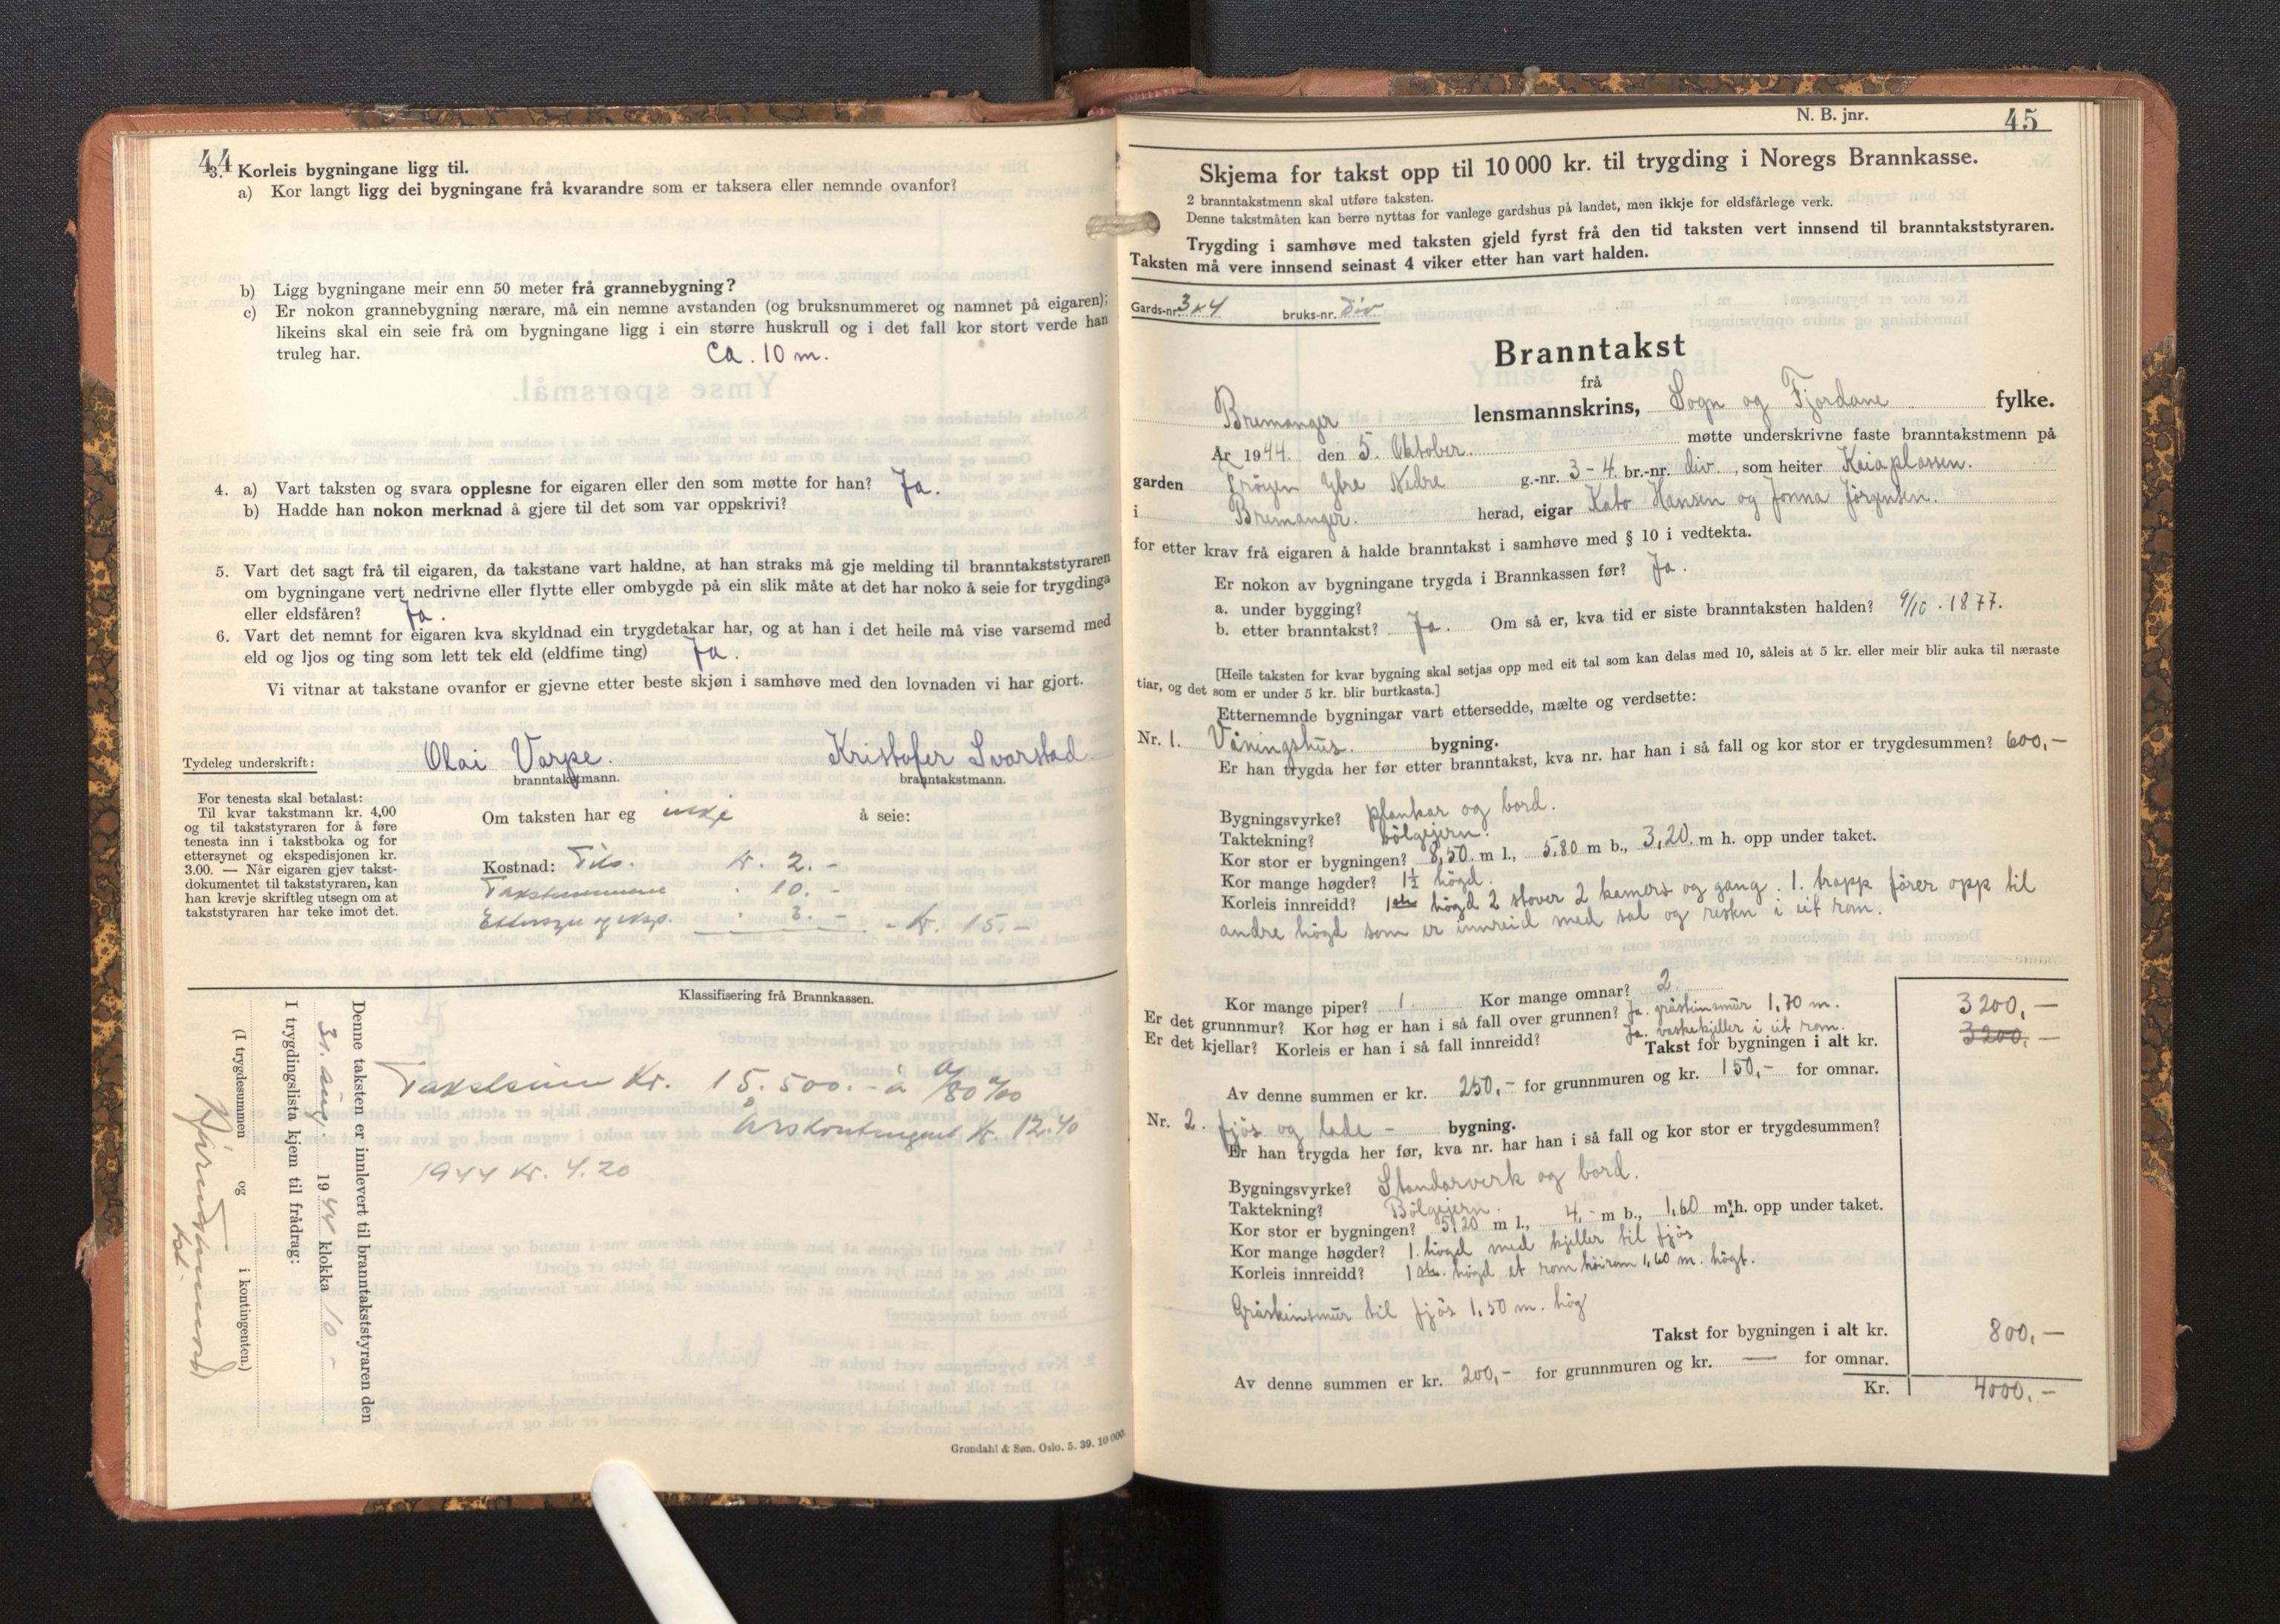 44
3. Korleis bygningane ligg til.
a) Kor langt ligg dei bygningane frå kvarandre som er taksera eller nemnde ovanfor?
b) Ligg bygningane meir enn 50 meter frå grannebygning?
c) Er nokon grannebygning nærare, må ein nemne avstanden (og bruksnummeret og namnet på eigaren);
likeins skal ein seie frå om bygningane ligg i ein større huskrull og i det fall kor stort verde han
truleg har. Ca. 10 m.
4. a) Vart taksten og svara opplesne for eigaren eller den som møtte for han? Ja.
b) Hadde han nokon merknad å gjere til det som var oppskrivi?
5. Vart det sagt frå til eigaren, da takstane vart haldne, at han straks må gje melding til branntakststyraren
om bygningane vert nedrivne eller flytte eller ombygde på ein slik måte at det har noko å seie for trygdinga
eller eldsfåren? Ja.
6. Vart det nemnt for eigaren kva skyldnad ein trygdetakar har, og at han i det heile må vise varsemd med
eld og ljos og ting som lett tek eld (eldfime ting) Ja.
Vi vitnar at takstane ovanfor er gjevne etter beste skjøn i samhøve med den lovnaden vi har gjort.
Tydeleg underskrift: Olai Varpe. Kristofer Svarstad.
branntakstmann. branntakstmann.
For tenesta skal betalast:
Til kvar takstmann kr. 4,00
og til takststyraren for å føre
tenesta inn i takstboka og for
ettersynet og ekspedisjonen kr.
3.00. — Når eigaren gjev takst-
dokumentet til takststyraren, kan
han krevje skriftleg utsegn om at
takststyraren har teke imot det.
Om taksten har eg inkje å seie:
Kostnad: Tils. kr. 2.-
Takstmennene " 10.-
Ettersyn og eksp. " 3.- - Kr. 15.-
Klassifisering frå Brannkassen.
Takstsum Kr. 15.500.- à 80 %
Årskontingent kr. 12.40
1944 kr. 4.20
Denne taksten er innlevert til branntakststyraren den
31. aug. 1944 klokka 10 -
I trygdingslista kjem til frådrag:
(I trygdesummen og i kontingenten.)
Grøndahl & Søn. Oslo. 5. 39. 10 000.
N. B. jnr. 45
Skjema for takst opp til 10 000 kr. til trygding i Noregs Brannkasse.
2 branntakstmenn skal utføre taksten.
Denne takstmåten kan berre nyttas for vanlege gardshus på landet, men ikkje for eldsfårlege verk.
Trygding i samhøve med taksten gjeld fyrst frå den tid taksten vert innsend til branntakststyraren.
Taksten må vere innsend seinast 4 viker etter han vart halden.
Gards-nr. 3 x 4 bruks-nr. div
Branntakst
frå
Bremanger lensmannskrins, Sogn og Fjordane fylke.
År 1944. den 5. Oktober. møtte underskrivne faste branntakstmenn på
garden Frøyen Ybre Nedre g.-nr. 3 - 4. br.-nr. div. , som heiter Kaiaplassen.
i Bremanger. herad, eigar Kato Hansen og Jonna Jørgensen.
for etter krav frå eigaren å halde branntakst i samhøve med § 10 i vedtekta.
Er nokon av bygningane trygda i Brannkassen før? Ja.
a. under bygging?
b. etter branntakst? Ja. Om så er, kva tid er siste branntaksten halden? 9/10. 1877.
[Heile taksten for kvar bygning skal setjas opp med eit tal som kan delas med 10, såleis at 5 kr. eller meir blir auka til næraste
tiar, og det som er under 5 kr. blir burtkasta.]
Etternemnde bygningar vart ettersedde, mælte og verdsette:
Nr. 1. Våningshus. bygning.
Er han trygda her før etter branntakst, kva nr. har han i så fall og kor stor er trygdesummen? 600,-
Bygningsvyrke? plankar og bord.
Taktekning? bölgejern.
Kor stor er bygningen? 8,50. m l., 5,80 m b., 3,20. m h. opp under taket.
Kor mange høgder? 1½ högd.
Korleis innreidd? 1ste högd 2 stover 2 kamers og gang. 1. trapp förer opp til
andre högd som er innreid med sal og resten i eit rom.
Kor mange piper? 1. Kor mange omnar? 2.
Er det grunnmur? Kor høg er han i så fall over grunnen? Ja. gråsteinsmur 1,70 m. 3200,-
Er det kjellar? Korleis er han i så fall innreidd? Ja. vaskekjeller i eit rom.
Takst for bygningen i alt kr. 3200,-
Av denne summen er kr. 250,- for grunnmuren og kr. 150,- for omnar.
Nr. 2. fjös og lade - bygning.
Er han trygda her før, kva nr. har han i så fall og kor stor er trygdesummen?
Bygningsvyrke? Standarverk og bord.
Taktekning? Bölgejern.
Kor stor er bygningen? 5,20 m l., 4,- m b., 1,60 m h. opp under taket.
Kor mange høgder? 1. högd med kjeller til fjös
Korleis innreidd? 1 ste. högd et rom höirom 1,60 m. högt.
Gråsteinsmur til fjös 1,50 m. hög
Takst for bygningen i alt kr. 800,-
Av denne summen er kr. 200,- for grunnmuren og kr. — for omnar.
Kr. 4000,-